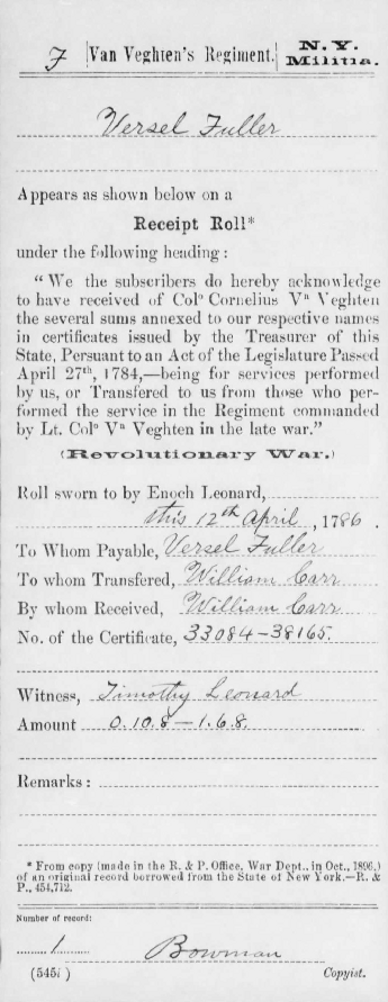 F | Van Veghten's Regiment. | N. Y. Militia.
Versel Fuller
Appears as shown below on a
Receipt Roll*
under the following heading:
"We the subscribers do hereby acknowledge
to have received of Colº Cornelius Vⁿ Veghten
the several sums annexed to our respective names
in certificates issued by the Treasurer of this
State, Persuant to an Act of the Legislature Passed
April 27th, 1784,—being for services performed
by us, or Transfered to us from those who per-
formed the service in the Regiment commanded
by Lt. Colº Vⁿ Veghten in the late war."
(Revolutionary War.)
Roll sworn to by Enoch Leonard,
this 12th April, 1786.
To Whom Payable, Versel Fuller
To whom Transfered, William Carr
By whom Received, William Carr
No. of the Certificate, 33084–38165.
Witness, Timothy Leonard
Amount 0.10.8 – 1.6.8.
Remarks:
* From copy (made in the R. & P. Office, War Dept., in Oct., 1896,)
of an original record borrowed from the State of New York.—R. &
P., 454,712.
Number of record:
1 Bowman
(545i) Copyist.